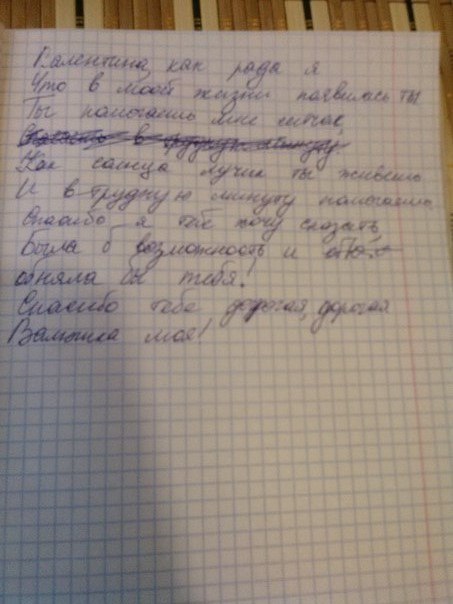 Валентина, как рада я
Что в моей жизни появилась ты
Ты помогаешь мне сейчас,
Как солнца лучик ты живёшь
И в трудную минуту помогаешь
Спасибо я тебе хочу сказать,
Была б возможность и
обняла бы тебя!
Спасибо тебе дорогая, дорогая
Валюшка моя!